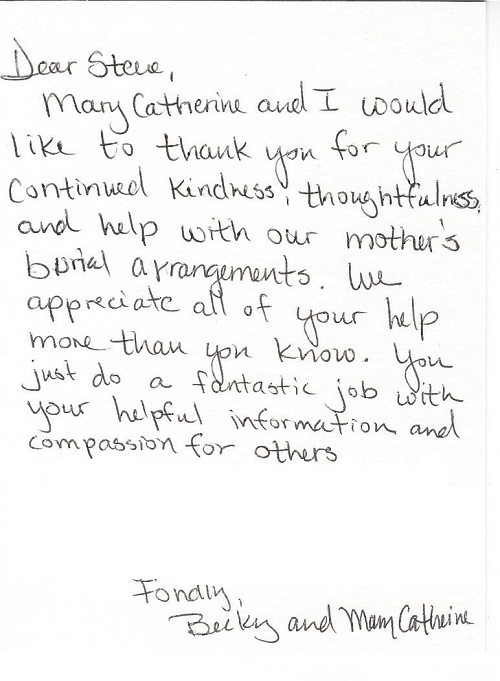 Dear Steve,
Mary Catherine and I would
like to thank you for your
continued kindness, thoughtfulness,
and help with our mother's
burial arrangements. We
appreciate all of your help
more than you know. You
just do a fantastic job with
your helpful information and
compassion for others
Fondly,
Becky and Mary Catherine